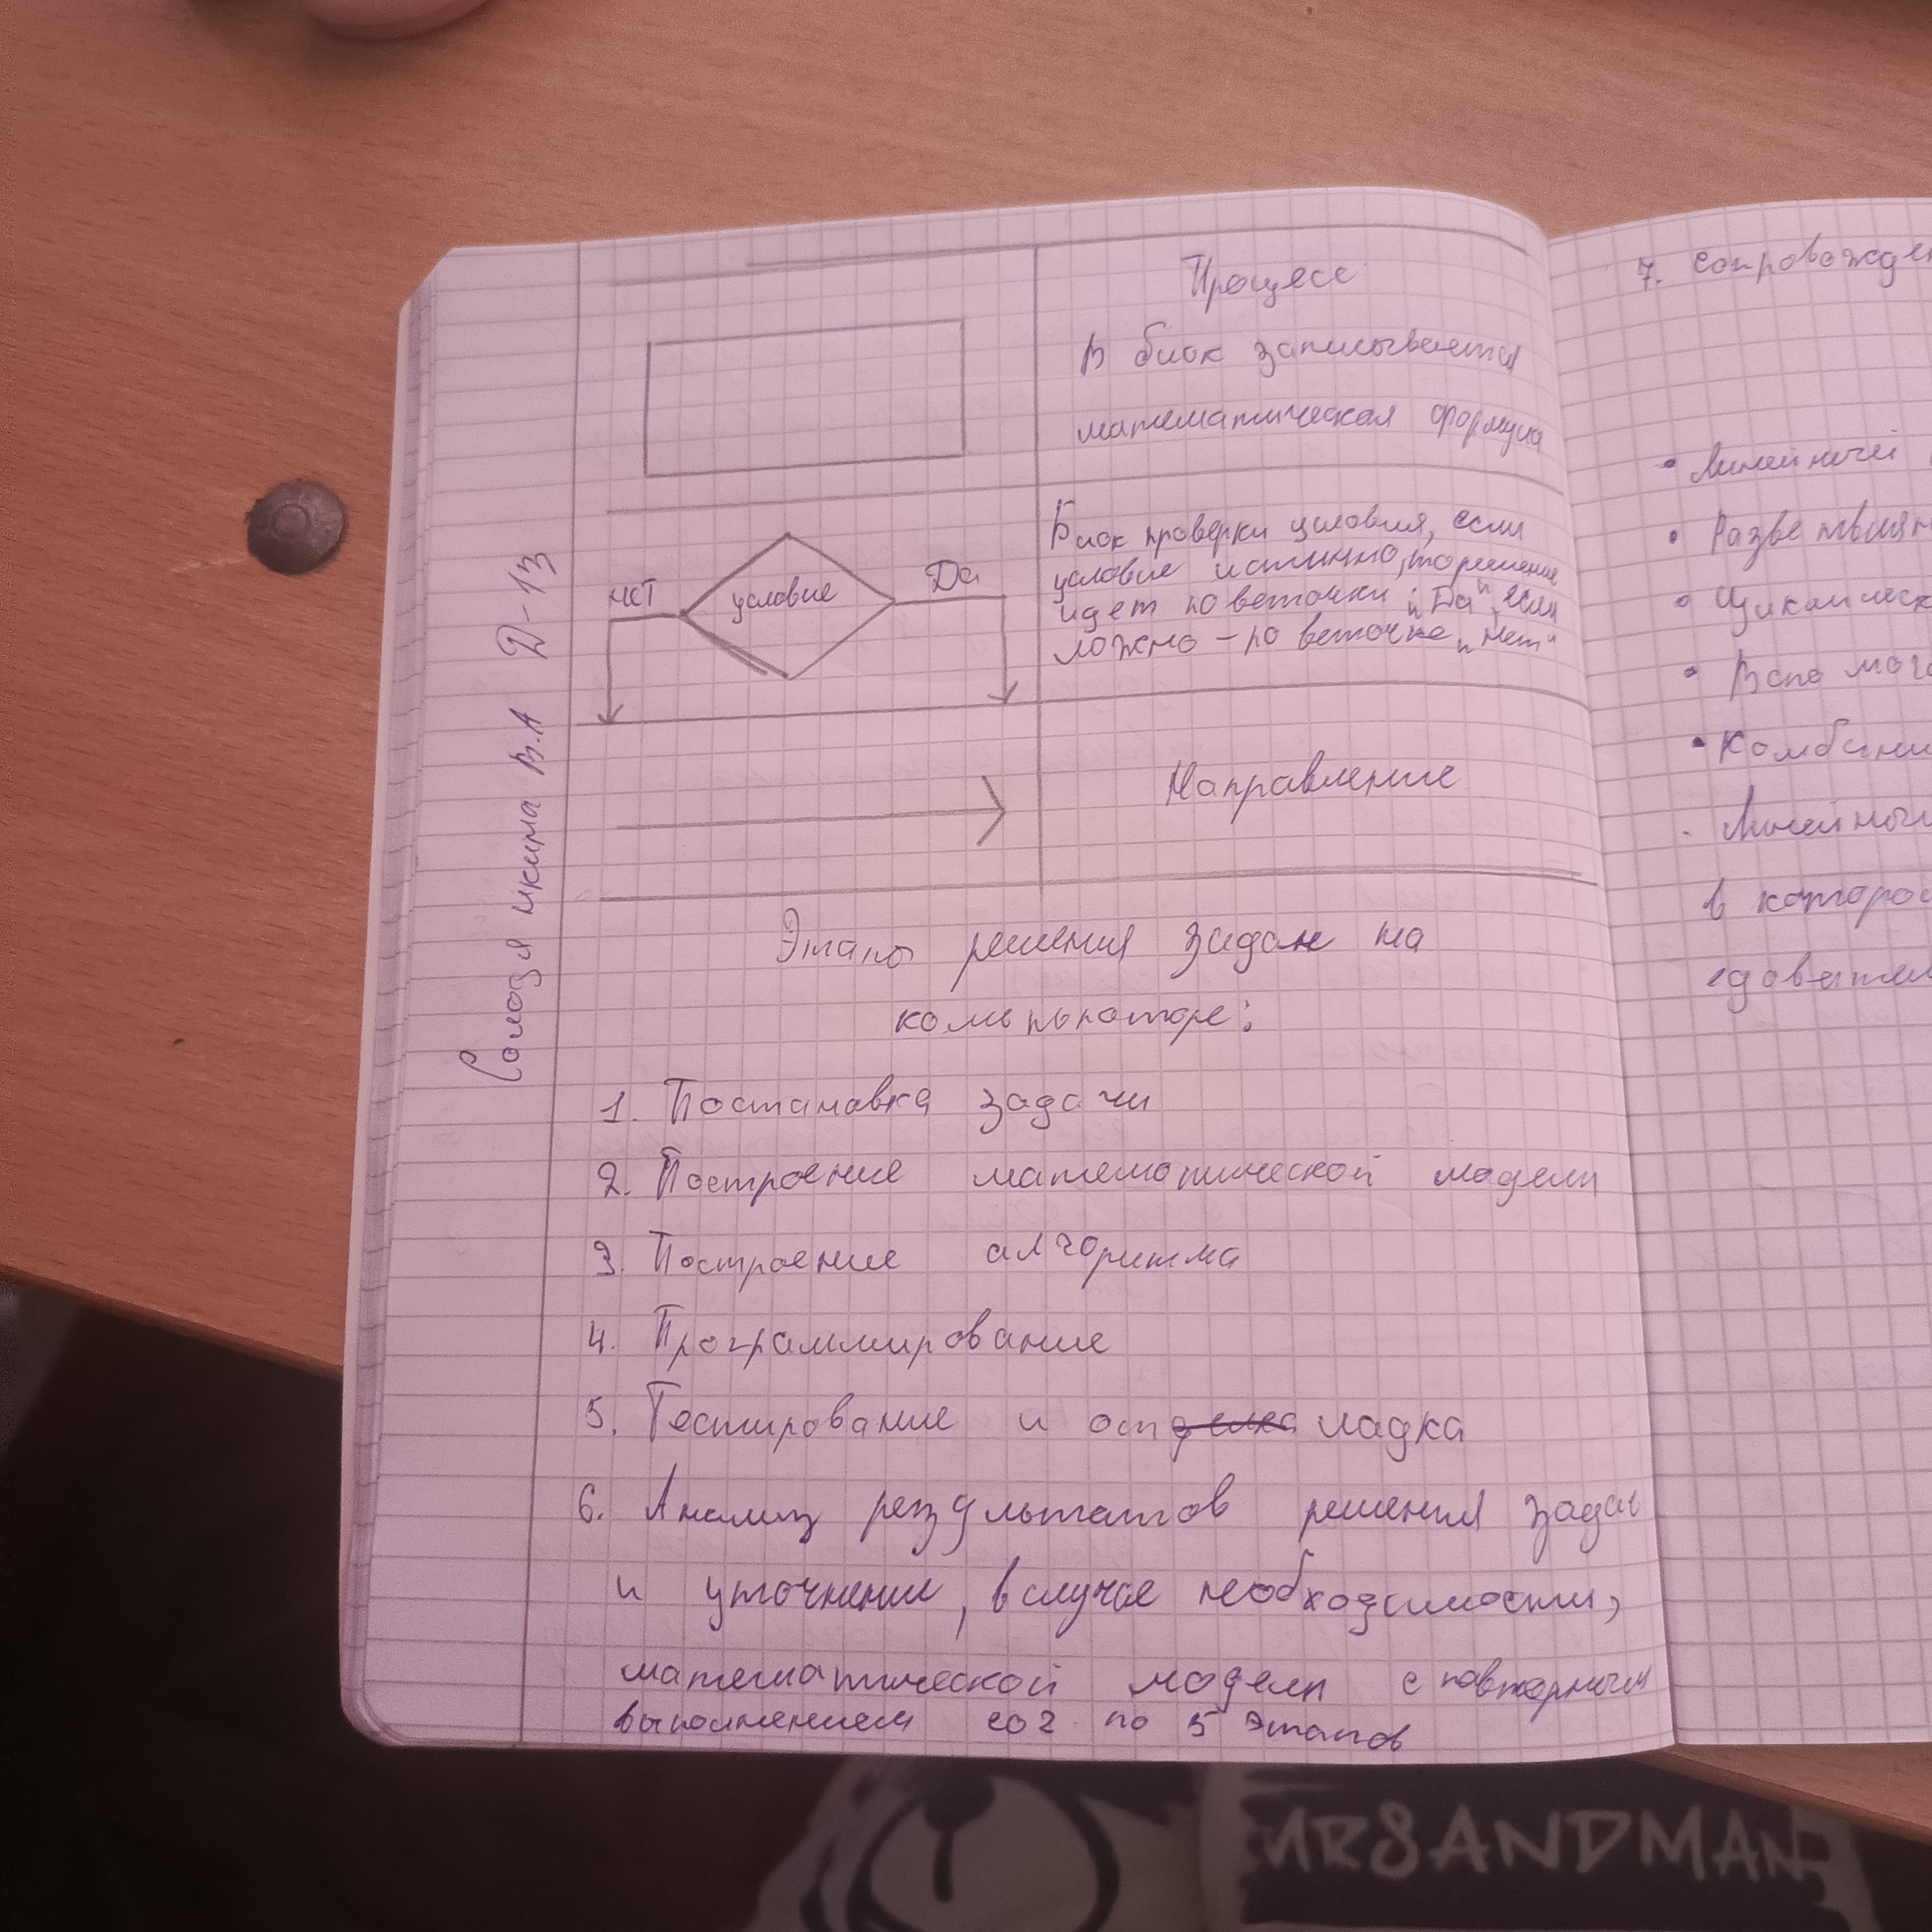 Процесс
В блок записывается
математическая формула
нет
условие
Да
Блок проверки условия, если
условие истинно, то решение
идет по веточки "Да", если
ложно - по веточке "нет"
Направление
Этапы решения задач на
компьютере:
1. Постановка задачи
2. Построение математической модели
3. Построение алгоритма
4. Программирование
5. Тестирование и отладка
6. Анализ результатов решения задач
и уточнение, в случае необходимости,
математической модели с повторным
выполнением со 2 по 5 этапов
В.А Д-13
7. сопровожде
• Линейный
• Разветвлян
• Циклическ
• Вспомог
• Комбини
- Линейный
в которо
MRSANDMAN